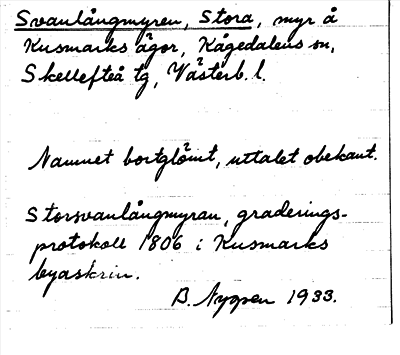 Svanlångmyren, Stora, myr å
Kusmarks ägor, Kågedalens sn,
Skellefteå tg, Västerb. l.
Namnet bortglömt, uttalet obekant.
Storsvanlångmyran, graderings-
protokoll 1806 i Kusmarks
byaskrin.
B. Nygren 1933.